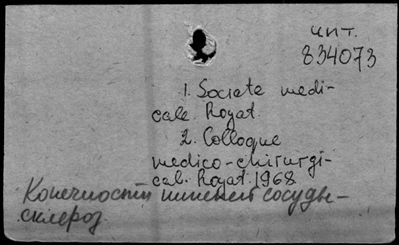 чит.
834073
1. Societe medi-
cale. Royat.
2. Colloque
medico-chirurgi-
cal. Royat. 1968
Конечности нижней сосуды-
склероз